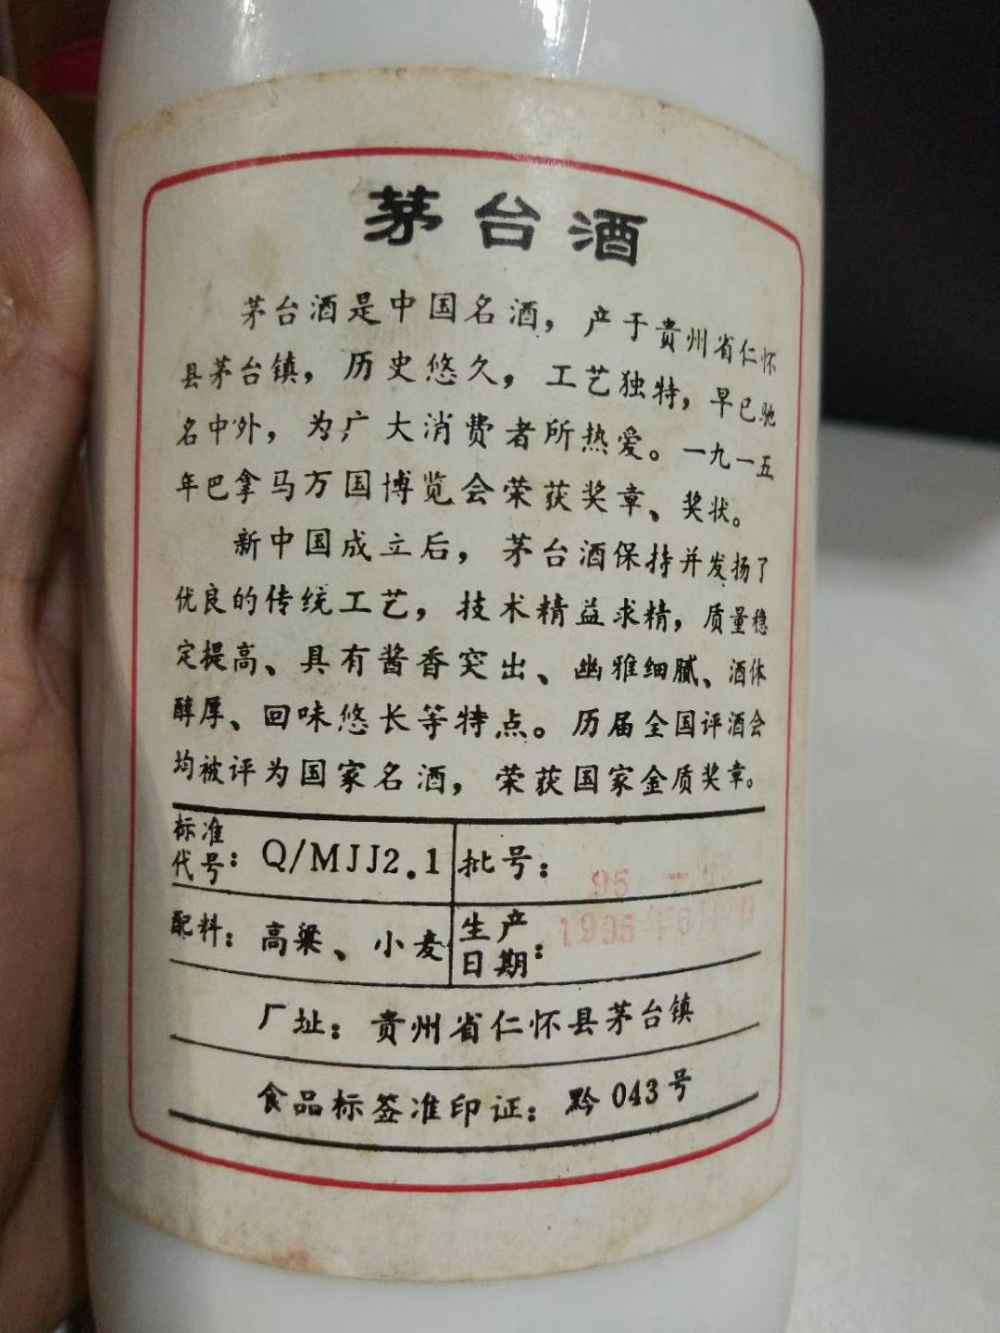 茅台酒
茅台酒是中国名酒，产于贵州省仁怀
县茅台镇，历史悠久，工艺独特，早已驰
名中外，为广大消费者所热爱。一九一五
年巴拿马万国博览会荣获奖章、奖状。
新中国成立后，茅台酒保持并发扬了
优良的传统工艺，技术精益求精，质量稳
定提高、具有酱香突出、幽雅细腻、酒体
醇厚、回味悠长等特点。历届全国评酒会
均被评为国家名酒，荣获国家金质奖章。
标准代号：Q/MJJ2.1
批号：95
配料：高粱、小麦
生产日期：
厂址：贵州省仁怀县茅台镇
食品标签准印证：黔043号